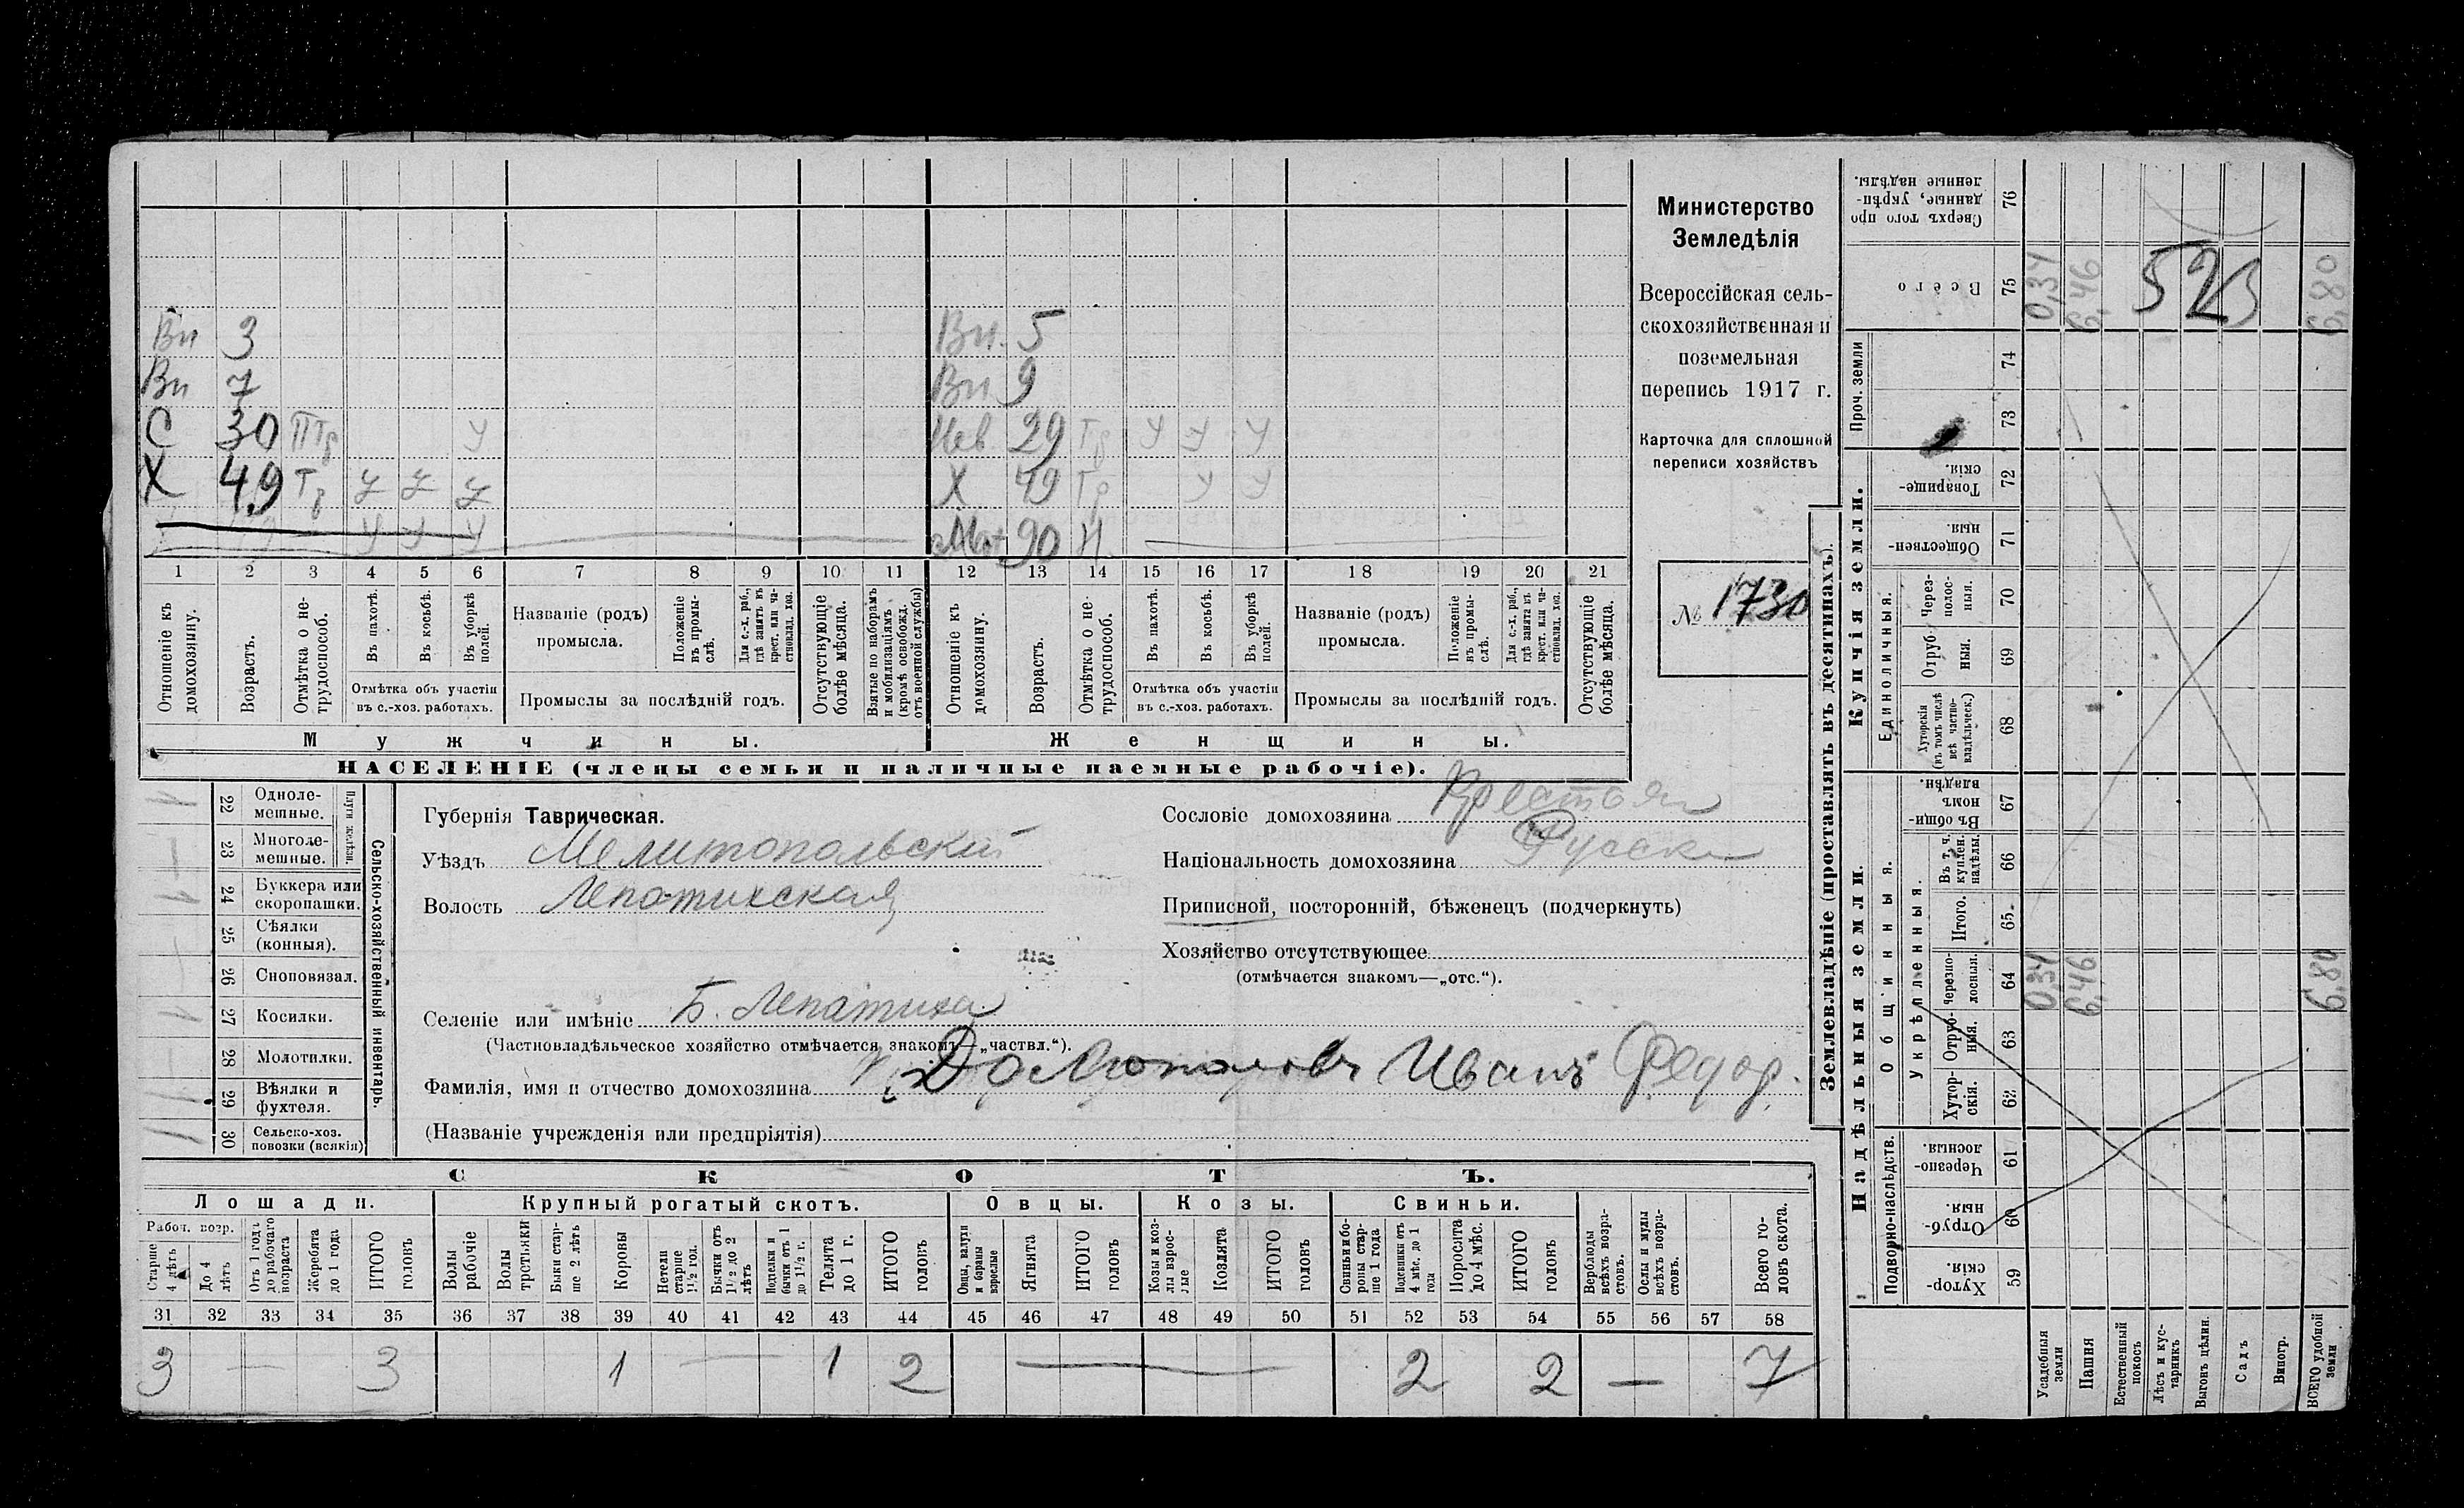 Вн 3
Вн. 5
Вн 7
Вн 9
С 30 ПТр У
Нев 29 Тр У У У
Х 49 Тр У У У
Х 49 Тр У У
У У У
Мат 90 Н
1 2 3 4 5 6 7 8 9 10 11 12 13 14 15 16 17 18 19 20 21
Отношеніе къ домохозяину.
Возрастъ.
Отмѣтка о не-трудоспособ.
Въ пахотѣ.
Въ косьбѣ.
Въ уборкѣ полей.
Отмѣтка объ участіи въ с.-хоз. работахъ.
Названіе (родъ) промысла.
Положеніе въ промы-слѣ.
Для с.-х. раб., гдѣ занятъ въ крест. или ча-стновлад. хоз.
Промыслы за послѣдній годъ.
Отсутствующіе болѣе мѣсяца.
Взятые по наборамъ и мобилизаціямъ (кромѣ освобожд. отъ военной службы)
Отношеніе къ домохозяину.
Возрастъ.
Отмѣтка о не-трудоспособ.
Въ пахотѣ.
Въ косьбѣ.
Въ уборкѣ полей.
Отмѣтка объ участіи въ с.-хоз. работахъ.
Названіе (родъ) промысла.
Положеніе въ промы-слѣ.
Для с.-х. раб., гдѣ занятъ въ крест. или ча-стновлад. хоз.
Промыслы за послѣдній годъ.
Отсутствующіе болѣе мѣсяца.
Мужчины.
Женщины.
НАСЕЛЕНІЕ (члены семьи и наличные наемные рабочіе).
Министерство
Земледѣлія
Всероссійская сель-
скохозяйственная и
поземельная
перепись 1917 г.
Карточка для сплошной
переписи хозяйствъ
№ 1730
Сельско-хозяйственный инвентарь.
Плуги желѣзн.
22 Одноле-мешные.
23 Многоле-мешные.
24 Буккера или скоропашки.
25 Сѣялки (конныя).
26 Сноповязал.
27 Косилки.
28 Молотилки.
29 Вѣялки и фухтеля.
30 Сельско-хоз. повозки (всякія)
Губернія Таврическая.
Уѣздъ Мелитопольскій
Волость Лепатихская
Селеніе или имѣніе Б. Лепатиха
(Частновладѣльческое хозяйство отмѣчается знакомъ—„частвл.“).
Фамилія, имя и отчество домохозяина Долгополовъ Иванъ Федор.
(Названіе учрежденія или предпріятія)
Сословіе домохозяина Крестьян
Національность домохозяина Русски
Приписной, посторонній, бѣженецъ (подчеркнуть)
Хозяйство отсутствующее
(отмѣчается знакомъ—„отс.“).
СКОТЪ.
Лошади. Крупный рогатый скотъ. Овцы. Козы. Свиньи.
Рабоч. возр.
Старше 4 лѣтъ
До 4 лѣтъ
Отъ 1 года до рабочаго возраста
Жеребята до 1 года
ИТОГО головъ
Волы рабочіе
Волы третьяки
Быки стар-ше 2 лѣтъ
Коровы
Нетели старше 1 1/2 год.
Бычки отъ 1 1/2 до 2 лѣтъ
Подтелки и бычки отъ 1 до 1 1/2 г.
Телята до 1 г.
ИТОГО головъ
Овцы, валухи и бараны взрослые
Ягнята
ИТОГО головъ
Козы и коз-лы взрос-лые
Козлята
ИТОГО головъ
Свиньи и бо-ровы стар-ше 1 года
Подсвинки отъ 4 мѣс. до 1 года
Поросята до 4 мѣс.
ИТОГО головъ
Верблюды всѣхъ возра-стовъ.
Ослы и мулы всѣхъ возра-стовъ.
Всего го-ловъ скота.
31 32 33 34 35 36 37 38 39 40 41 42 43 44 45 46 47 48 49 50 51 52 53 54 55 56 57 58
3 — 3 1 — 1 2 — 2 2 — 7
Землевладѣніе (проставлять въ десятинахъ).
Купчія земли.
Надѣльныя земли.
Проч. земли
Единоличныя.
Общинныя.
Укрѣпленныя.
Подворно-наслѣдств.
Сверхъ того про-данные, укрѣп-ленные надѣлы. 76
Всего 75 0,34 6,46 523 6,80
74
73
Товарище-скія. 72
Обществен-ныя. 71
Через-полос-ныя. 70
Отруб-ныя. 69
Хуторскія (въ томъ числѣ всѣ частно-владѣльческ.) 68
Въ общин-номъ владѣн. 67
Въ т. ч. куплен. надѣлы 66
Итого. 65
Черезпо-лосныя. 64 0,34 6,46 6,80
Отруб-ныя. 63
Хутор-скія. 62
Черезпо-лосныя. 61
Отруб-ныя. 60
Хутор-скія. 59
Усадебныя земли
Пашня
Естественный покосъ
Лѣсъ и кус-тарникъ
Выгонъ цѣлин.
Садъ
Виногр.
ВСЕГО удобной земли